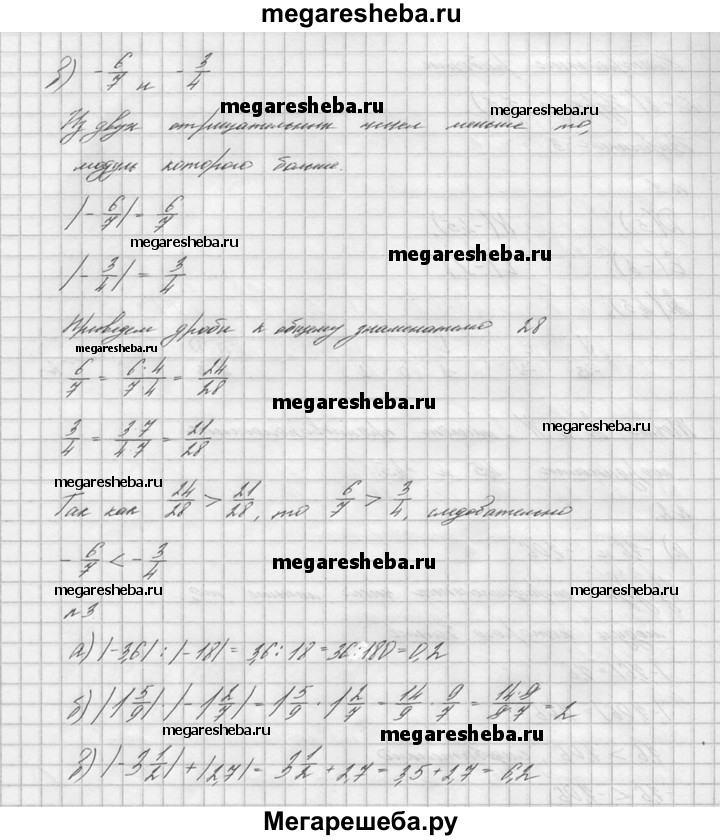 megaresheba.ru
в) -6/7 и -3/4
megaresheba.ru
megaresheba.ru
Из двух отрицательных чисел меньше то,
модуль которого больше.
|-6/7| = 6/7
megaresheba.ru
megaresheba.ru
|-3/4| = 3/4
Приведем дроби к общему знаменателю 28
megaresheba.ru
6/7 = 6·4/7·4 = 24/28
megaresheba.ru
3/4 = 3·7/4·7 = 21/28
megaresheba.ru
megaresheba.ru
Так как 24/28 > 21/28, то 6/7 > 3/4, следовательно
-6/7 < -3/4
megaresheba.ru
megaresheba.ru
megaresheba.ru
№3
а) |-3,6| : |-18| = 3,6 : 18 = 36 : 180 = 0,2
б) |1 5/9| |-1 2/7| = 1 5/9 · 1 2/7 = 14/9 · 9/7 = 14·9/9·7 = 2
megaresheba.ru
megaresheba.ru
в) |-3 1/2| + |2,7| = 3 1/2 + 2,7 = 3,5 + 2,7 = 6,2
Мегарешеба.ру